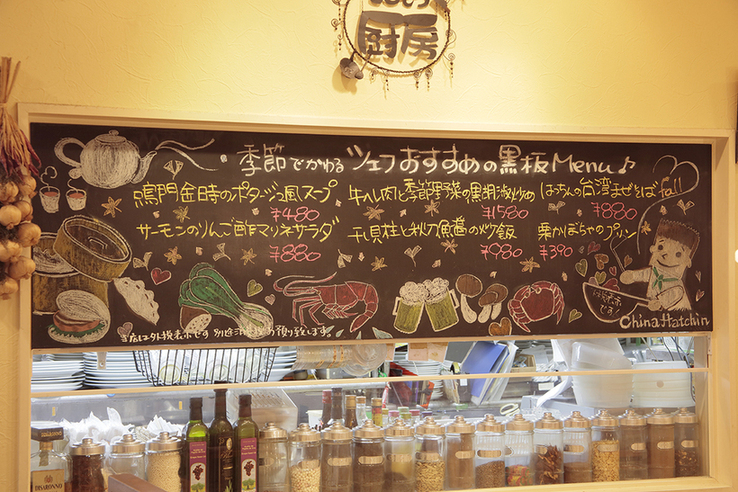 厨房
季節でかわる シェフおすすめの黒板Menu♪
鳴門金時のポタージュ風スープ
¥480
サーモンのりんご酢マリネサラダ
¥880
牛ヘレ肉と季節野菜の黒胡椒炒め
¥1580
干貝柱と秋刀魚の炒飯
¥980
はっちんの台湾まぜそば
¥880
栗かぼちゃのプリン
¥390
fall
当店は外税表示です 別途消費税お預り致します。
China Hatchin
DISARONNO